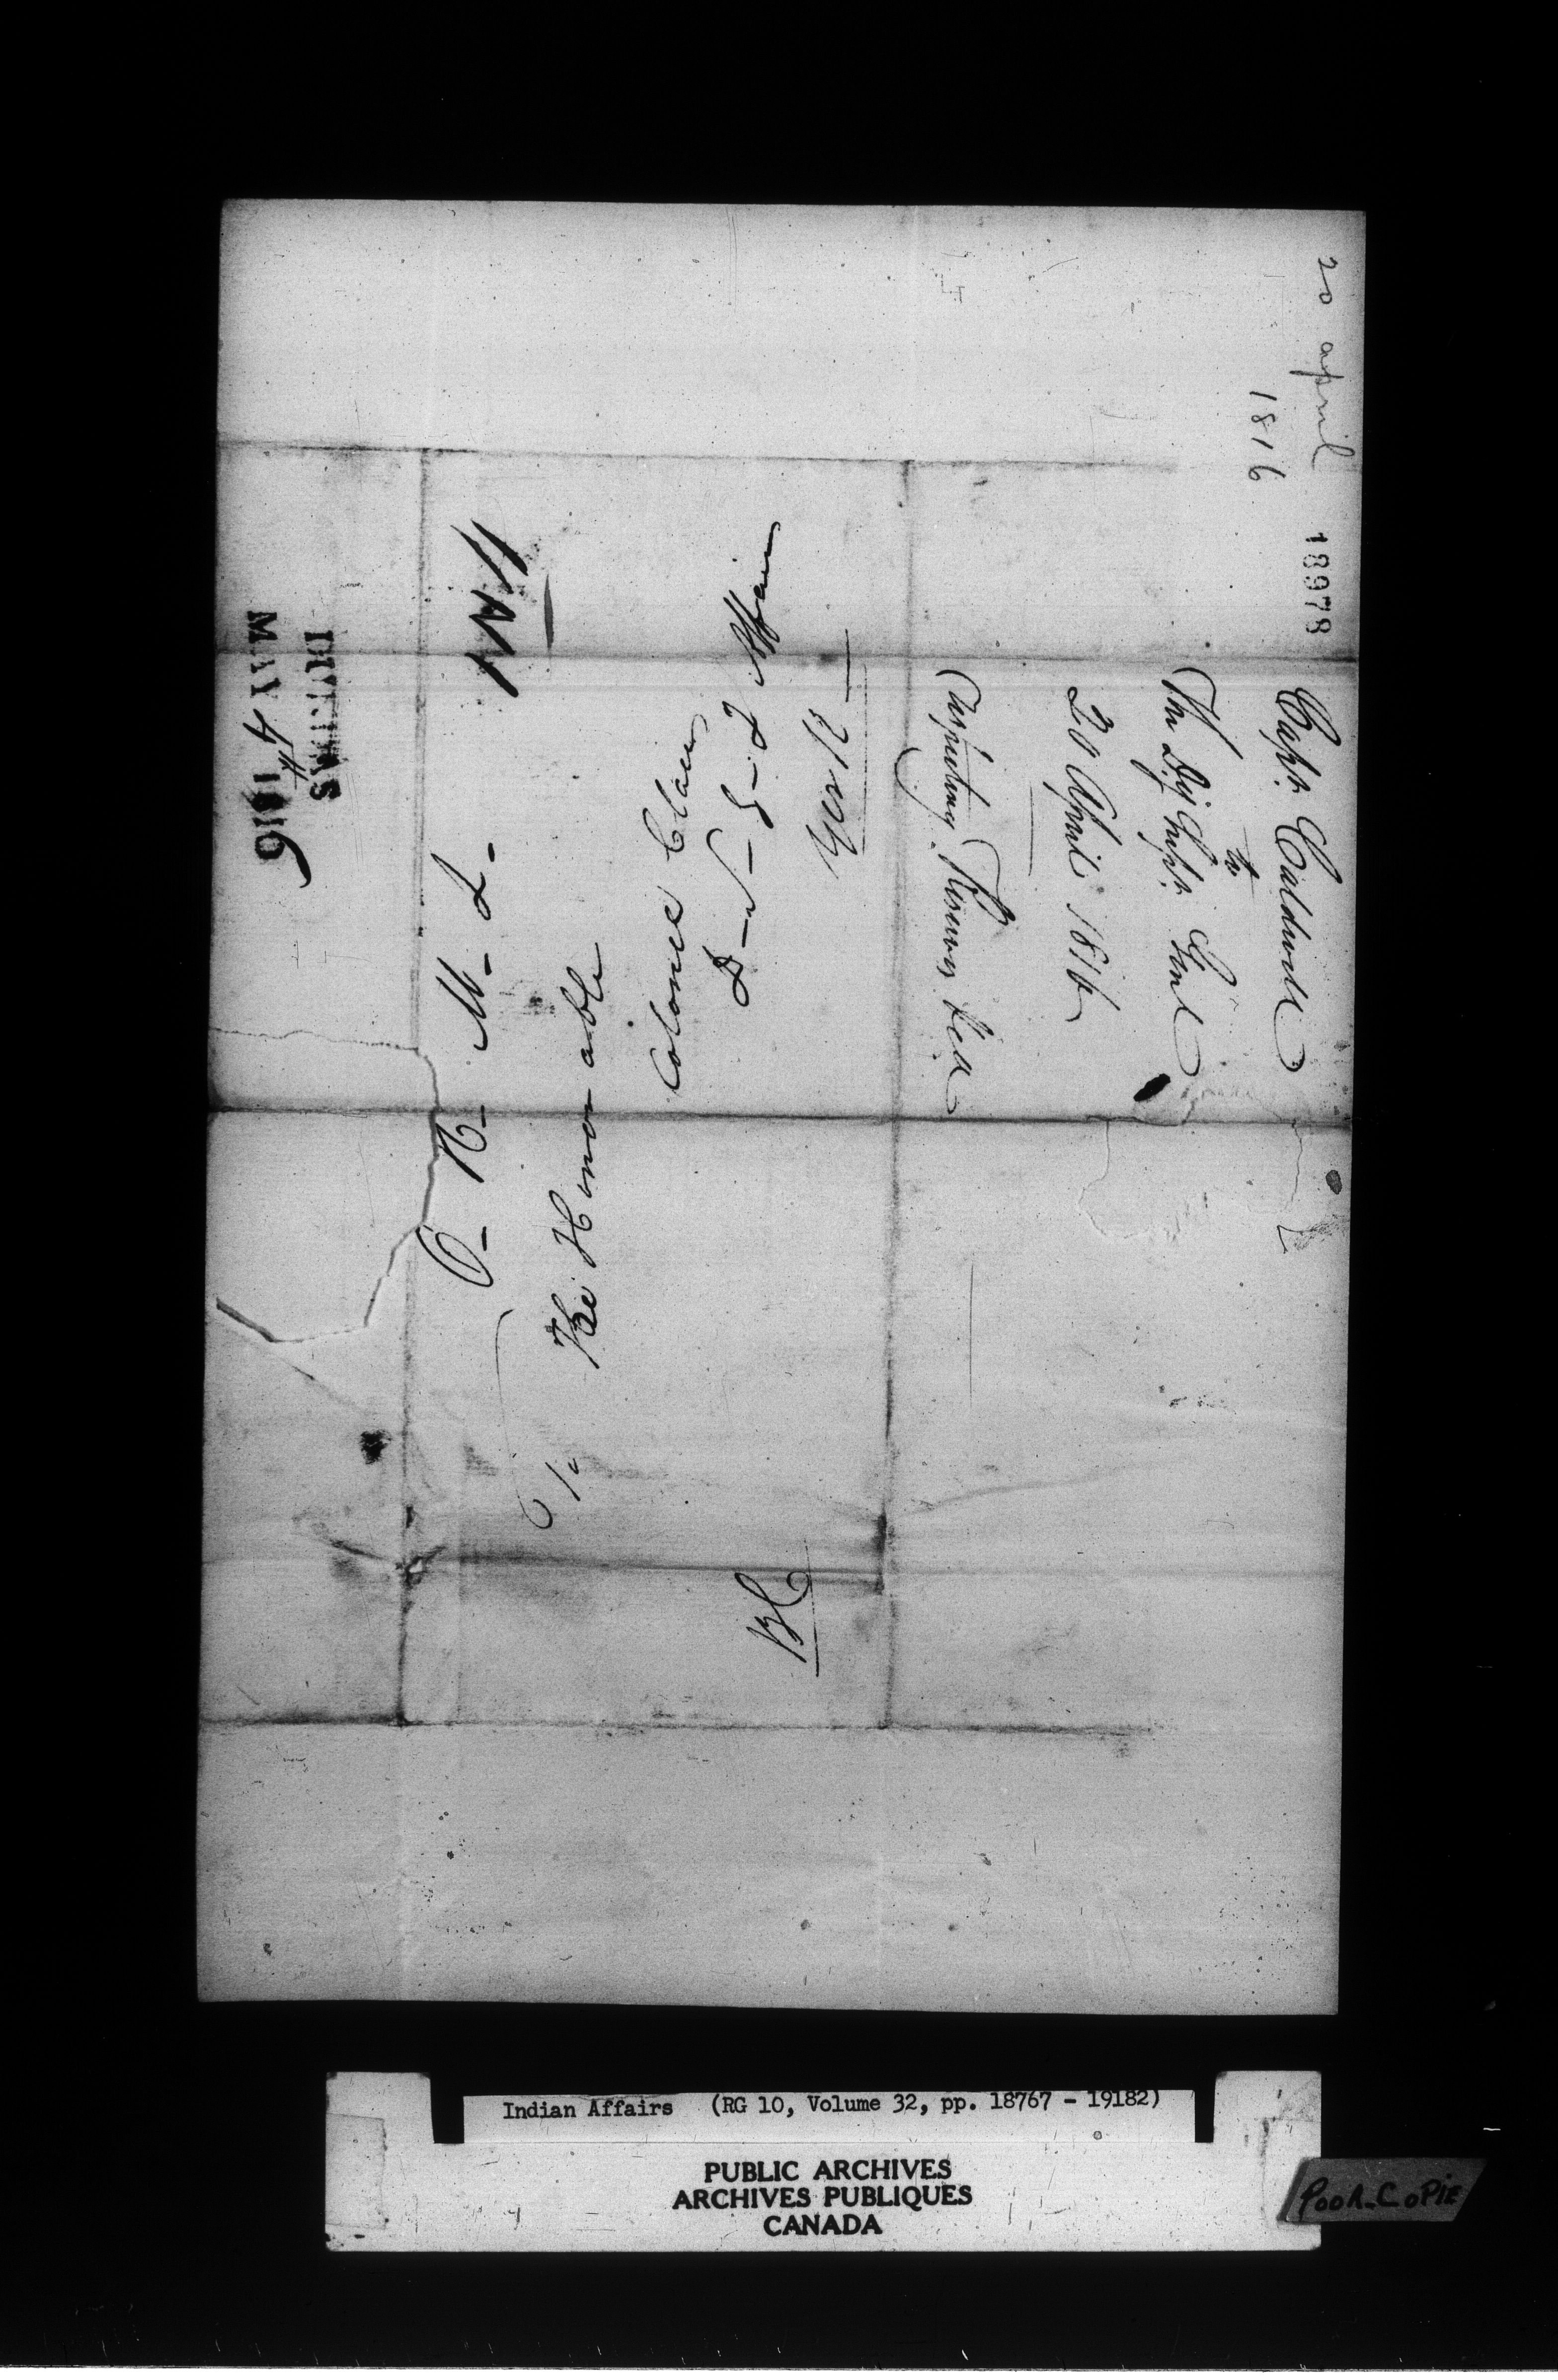 20 april
1816
18978
Capt. Caldwell
to
The Dy Supt. Genl
20 April 1816
respecting Reserves Led
DUNDAS
MAY 4th 1816
1N4
O- H- M- S-
The Honorable
Colonel Claus
D-S-G-I Affairs
York
BC
Indian Affairs (RG 10, Volume 32, pp. 18767 - 19182)
PUBLIC ARCHIVES
ARCHIVES PUBLIQUES
CANADA
POOR COPIE